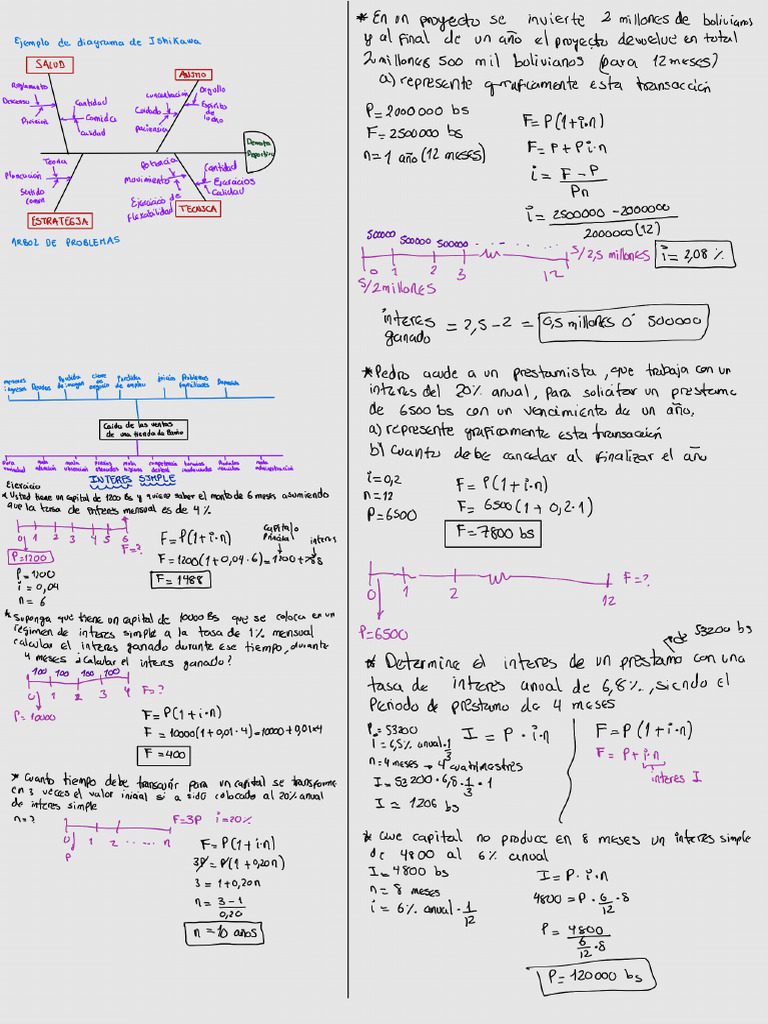 Ejemplo de diagrama de Ishikawa
SALUD
ANIMO
Reglamento
Descanso
Division
Cantidad
Comida
Calidad
concentración
Cuidado
paciencia
Orgullo
Espiritu de lucha
Derrota Deportiva
Teoria
Planeacion
Sentido comun
Potencia
Movimiento
Ejercicio de flexibilidad
Cantidad
Ejercicios
Calidad
ESTRATEGIA
TECNICA
ARBOL DE PROBLEMAS
menores ingresos
Deudas
Perdida de imagen
cierre de negocio
Perdida de empleo
Juicios
Problemas familiares
Depresión
Caida de las ventas
de una tienda de Barrio
poca variedad
mala atencion
mala ubicacion
Precios elevados
mala higiene
competencia desleal
horarios inadecuados
mala administracion
INTERES SIMPLE
Ejercicio
* Usted tiene un capital de 1200 Bs y quiere saber el monto de 6 meses asumiendo
que la tasa de interes mensual es de 4%
0 1 2 3 4 5 6
F=?
P=1200
P=1200
i=0,04
n=6
F=P(1+i·n)
Capital o Principal
interes
F=1200(1+0,04·6)=1200+288
F=1488
* Suponga que tiene un capital de 10000 Bs que se coloca en un
regimen de interes simple a la tasa de 1% mensual
calcular el interes ganado durante ese tiempo, durante
4 meses ¿Calcular el interes ganado?
100 100 100 100
0 1 2 3 4 F=?
P=10000
F=P(1+i·n)
F=10000(1+0,01·4)=10000+0,01×4
F=400
* Cuanto tiempo debe transcurrir para un capital se transforme
en 3 veces el valor inicial si a sido colocado al 20% anual
de interes simple
n=?
F=3P i=20%
1 1 2 ..... n
P
F=P(1+i·n)
3P=P(1+0,20n)
3=1+0,20n
n=3-1/0,20
n=10 años
* En un proyecto se invierte 2 millones de bolivianos
y al final de un año el proyecto devuelve en total
2 millones 500 mil bolivianos (para 12 meses)
a) represente graficamente esta transacción
P=2000000 bs
F=2500000 bs
n=1 año (12 meses)
F=P(1+i·n)
F=P+Pi·n
i=F-P/Pn
i=2500000-2000000/2000000(12)
i=2,08%
500000 500000 500000 - - - -
0 1 2 3 12
$/2,5 millones
$/2 millones
interes ganado = 2,5-2 = 0,5 millones ó 500000
* Pedro acude a un prestamista, que trabaja con un
interes del 20% anual, para solicitar un prestamo
de 6500 bs con un vencimiento de un año,
a) represente graficamente esta transación
b) Cuanto debe cancelar al finalizar el año
i=0,2
n=12
P=6500
F=P(1+i·n)
F=6500(1+0,2·1)
F=7800 bs
0 1 2 12
F=?
P=6500
de 53200 bs
* Determine el interes de un prestamo con una
tasa de interes anual de 6,8%, siendo el
Periodo de prestamo de 4 meses
P=53200
i=6,8% anual·1/3
n=4 meses → 4 cuatrimestres
I=P·i·n
I=53200·6,8·1/3·1
I=1206 bs
F=P(1+i·n)
F=P+i·n
interes I
* Que capital no produce en 8 meses un interes simple
de 4800 al 6% anual
I=4800 bs
n=8 meses
i=6% anual·1/12
I=P·i·n
4800=P·6/12·8
P=4800/6/12·8
P=120000 bs